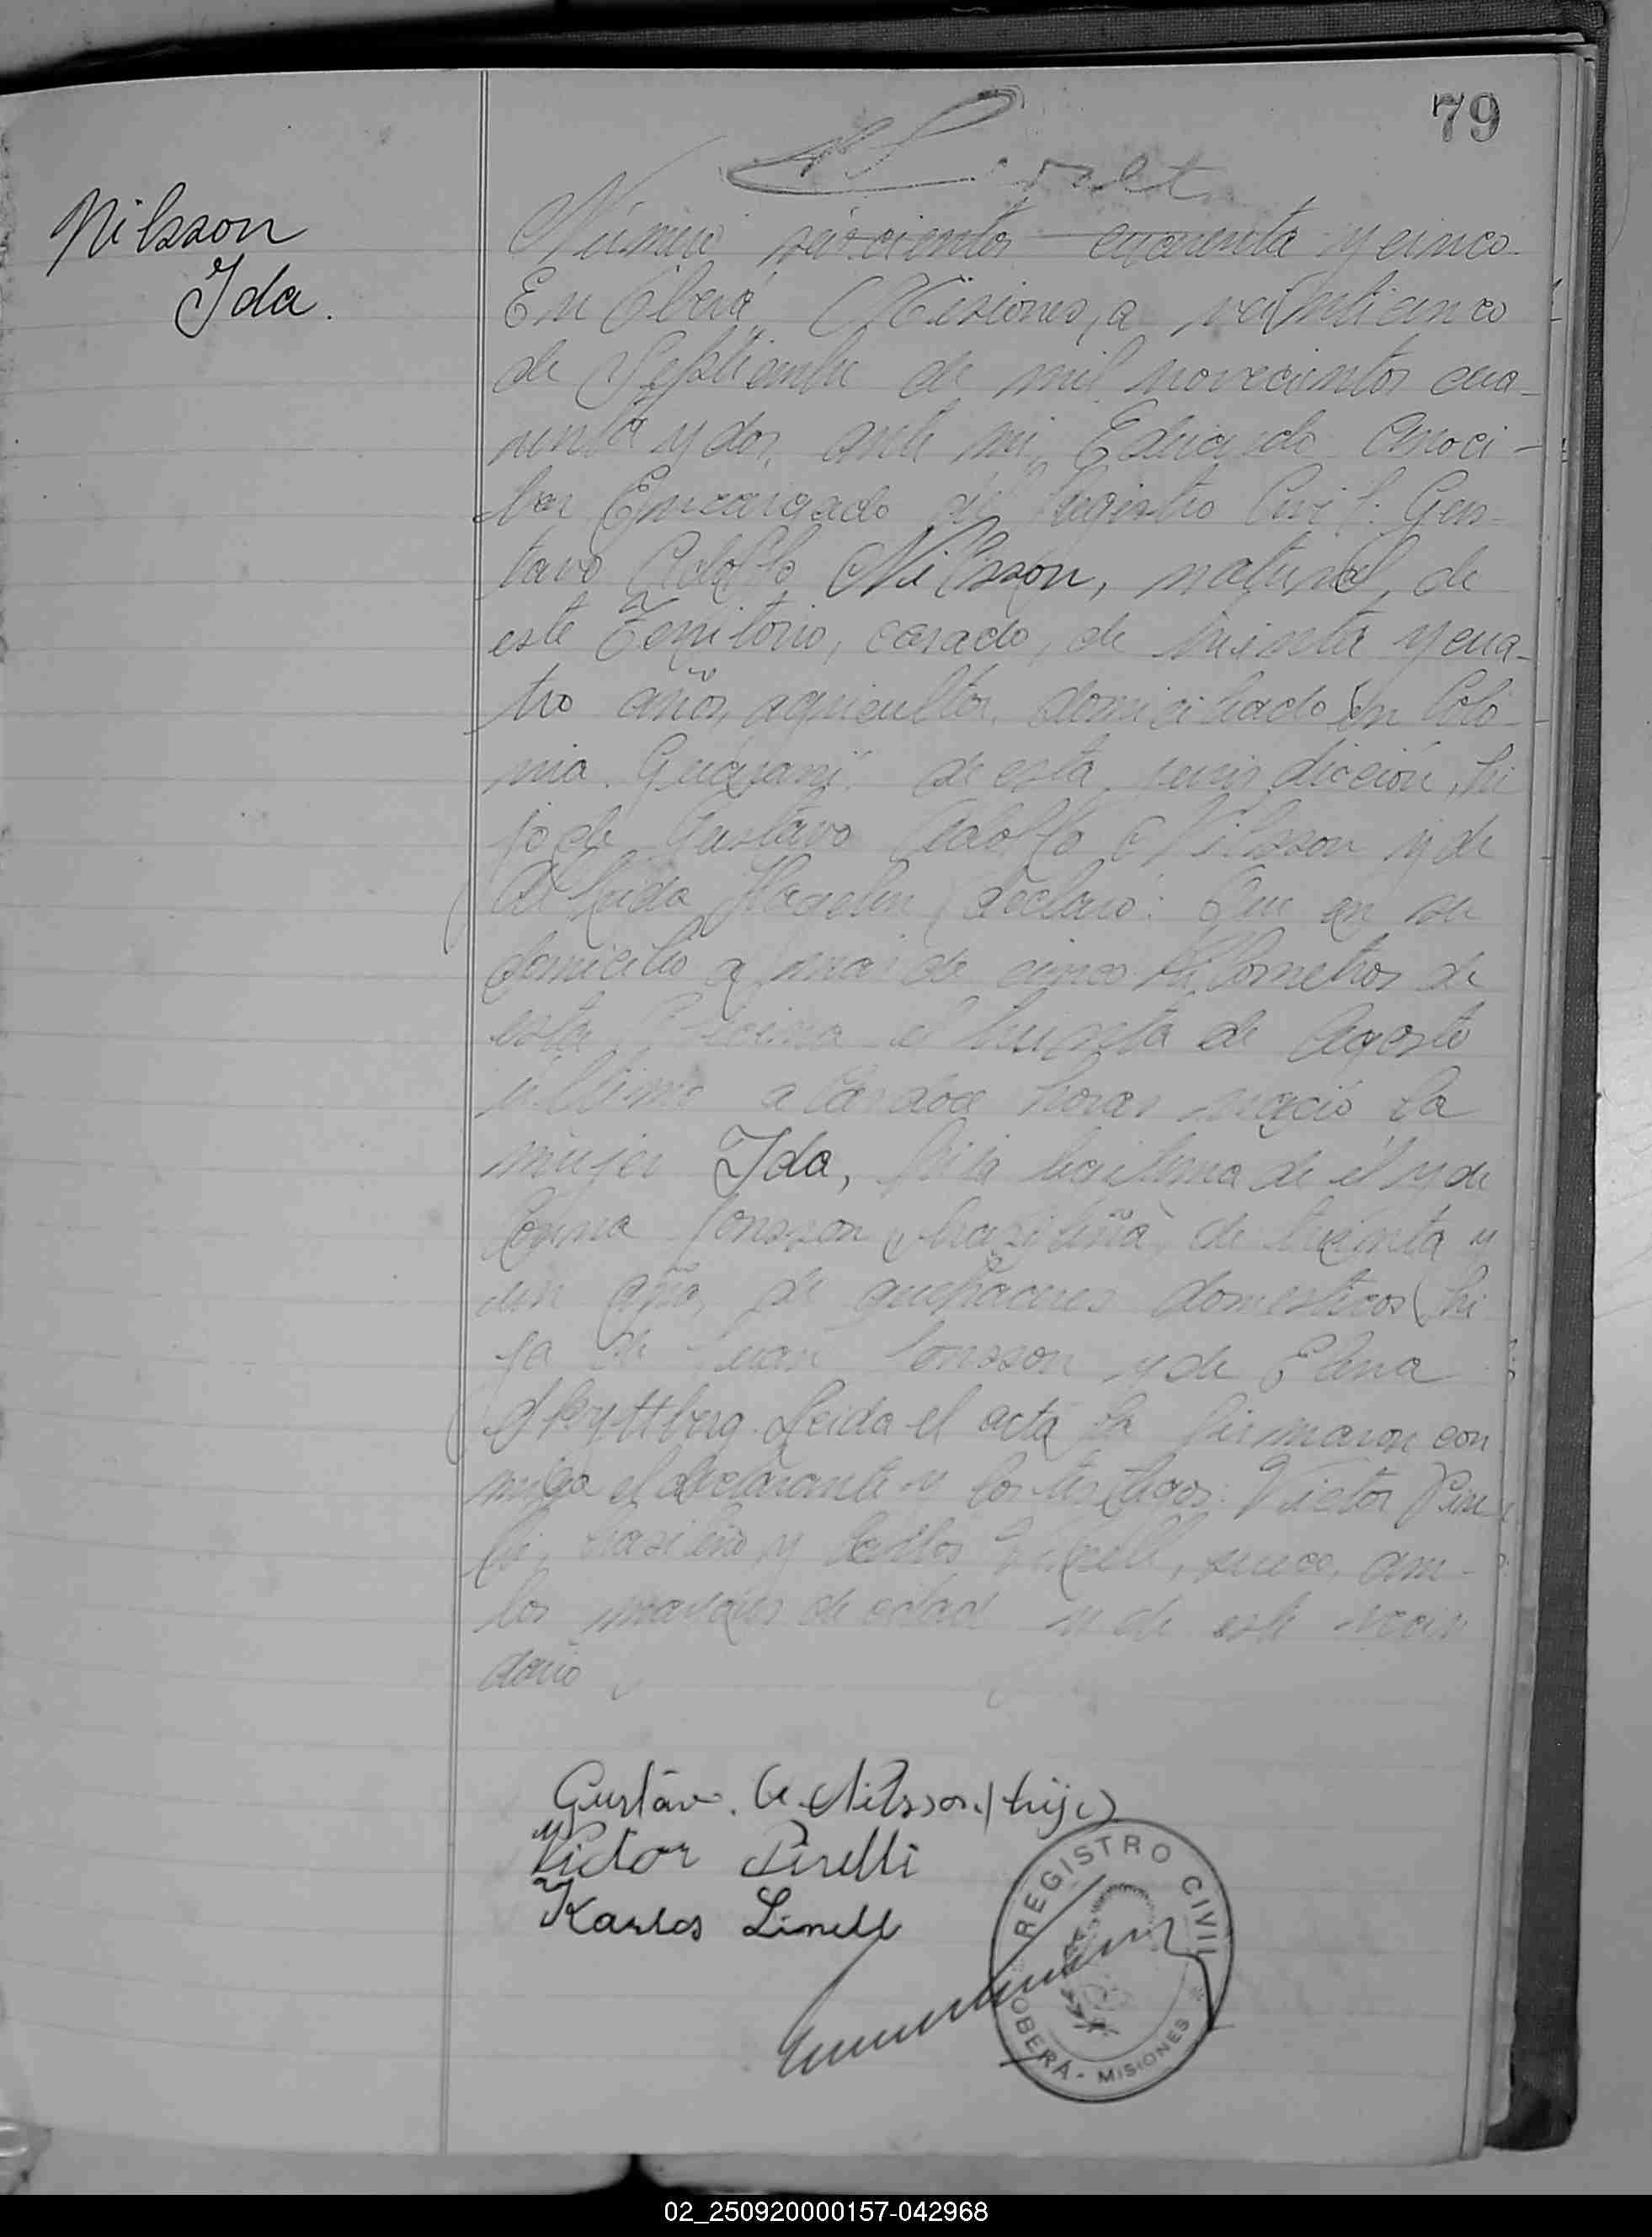 79
Nilsson
Ida.
Número seiscientos cuarenta y cinco
En Oberá, Misiones, a veinticinco
de Septiembre de mil novecientos cua-
renta y dos, ante mi, Eduardo
Encargado del Registro Civil: Gus-
tavo Adolfo Nilsson, natural de
este Territorio, casado, de treinta y cua-
tro años, agricultor, domiciliado en Colo-
nia Guarani de esta jurisdicción, hi
jo de Gustavo Adolfo Nilsson y de
declaró: Que en su
domicilio a mas de cinco kilometros de
esta Oficina el treinta de Agosto
último a las doce horas nació la
mujer Ida, hija legitima de él y de
Jonsson, brasileña, de treinta y
un año, de quehaceres domesticos, hi
ja de Juan Jonsson y de Elina
Skyttberg. Leida el acta la firmaron con
migo el declarante y los testigos: Victor Pire
lli, brasileño y Carlos Linell, sueco, am-
bos mayores de edad y de este vecin
dario
Gustavo. A. Nilsson (hijo)
Victor Pirelli
Karlos Linell
REGISTRO CIVIL
OBERÁ - MISIONES
02_250920000157-042968